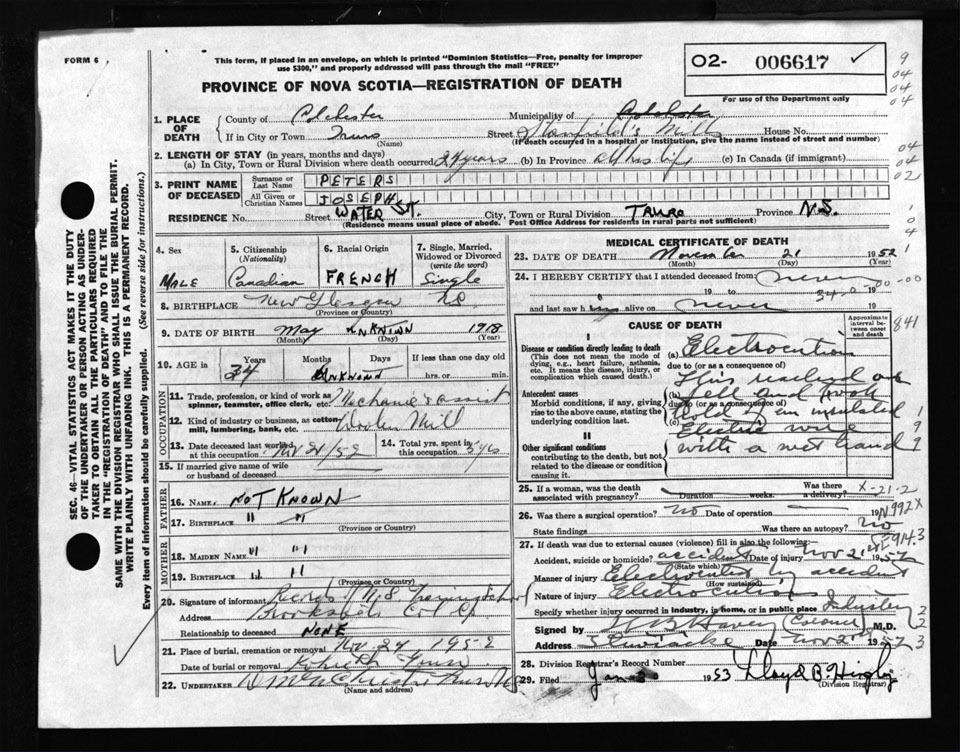 FORM 6
This form, if placed in an envelope, on which is printed "Dominion Statistics—Free, penalty for improper
use $300," and properly addressed will pass through the mail "FREE"
PROVINCE OF NOVA SCOTIA—REGISTRATION OF DEATH
O2- 006617 ✓
For use of the Department only
1. PLACE OF DEATH
County of Colchester Municipality of Colchester
If in City or Town Truro Street Stanfield's Mill House No.
(Name) (If death occurred in a hospital or institution, give the name instead of street and number)
2. LENGTH OF STAY (in years, months and days)
(a) In City, Town or Rural Division where death occurred 24 years (b) In Province All his life (c) In Canada (if immigrant)
3. PRINT NAME OF DECEASED
Surname or Last Name PETERS
All Given or Christian Names JOSEPH
RESIDENCE No. Street WATER ST. City, Town or Rural Division TRURO Province N.S.
(Residence means usual place of abode. Post Office Address for residents in rural parts not sufficient)
4. Sex
MALE
5. Citizenship
(Nationality)
Canadian
6. Racial Origin
FRENCH
7. Single, Married,
Widowed or Divorced
(write the word)
Single
8. BIRTHPLACE New Glasgow NS
(Province or Country)
9. DATE OF BIRTH May UNKNOWN 1918
(Month) (Day) (Yrs.)
10. AGE in
Years Months Days If less than one day old
34 UNKNOWN hrs. or min.
OCCUPATION
11. Trade, profession, or kind of work as
spinner, teamster, office clerk, etc. Mechanic's assist
12. Kind of industry or business, as cotton
mill, lumbering, bank, etc. Woolen Mill
13. Date deceased last worked
at this occupation Nov 21/52
14. Total yrs. spent in
this occupation
15. If married give name of wife
or husband of deceased
FATHER
16. Name NOT KNOWN
17. Birthplace " "
(Province or Country)
MOTHER
18. Maiden Name " "
19. Birthplace " "
(Province or Country)
20. Signature of informant Records NS Training School
Address Brookside Col Co
Relationship to deceased NONE
21. Place of burial, cremation or removal Nov. 24 1952
Date of burial or removal
22. UNDERTAKER
(Name and address)
MEDICAL CERTIFICATE OF DEATH
23. DATE OF DEATH November 21 1952
(Month) (Day) (Year)
24. I HEREBY CERTIFY that I attended deceased from never
19 to 19
and last saw him alive on never 19
CAUSE OF DEATH
Approximate interval between onset and death
Disease or condition directly leading to death
(This does not mean the mode of
dying, e.g., heart failure, asthenia,
etc. It means the disease, injury, or
complication which caused death.)
(a) Electrocution
due to (or as a consequence of)
Antecedent causes
Morbid conditions, if any, giving
rise to the above cause, stating the
underlying condition last.
(b) This resulted as
fell and took
due to (or as a consequence of)
(c) hold of an insulated
Electric wire
with a wet hand
II
Other significant conditions
contributing to the death, but not
related to the disease or condition
causing it.
25. If a woman, was the death
associated with pregnancy? Duration weeks. Was there a delivery?
26. Was there a surgical operation? no Date of operation 19
State findings Was there an autopsy? no
27. If death was due to external causes (violence) fill in also the following:
Accident, suicide or homicide? accident Date of injury Nov 21 1952
(State which)
Manner of injury Electrocuted by accident
(How sustained)
Nature of injury Electrocution
Specify whether injury occurred in industry, in home, or in public place Industry
Signed by (Coroner) M.D.
Address Stewiacke Date Nov 21 1952
28. Division Registrar's Record Number
29. Filed Jan 1953
(Division Registrar)
SEC. 46—VITAL STATISTICS ACT MAKES IT THE DUTY
OF THE UNDERTAKER OR PERSON ACTING AS UNDER-
TAKER TO OBTAIN ALL THE PARTICULARS REQUIRED
IN THE "REGISTRATION OF DEATH" AND TO FILE THE
SAME WITH THE DIVISION REGISTRAR WHO SHALL ISSUE THE BURIAL PERMIT.
WRITE PLAINLY WITH UNFADING INK. THIS IS A PERMANENT RECORD.
Every item of information should be carefully supplied. (See reverse side for instructions.)
9
04
04
04
04
02
841
X-21-2
N992X